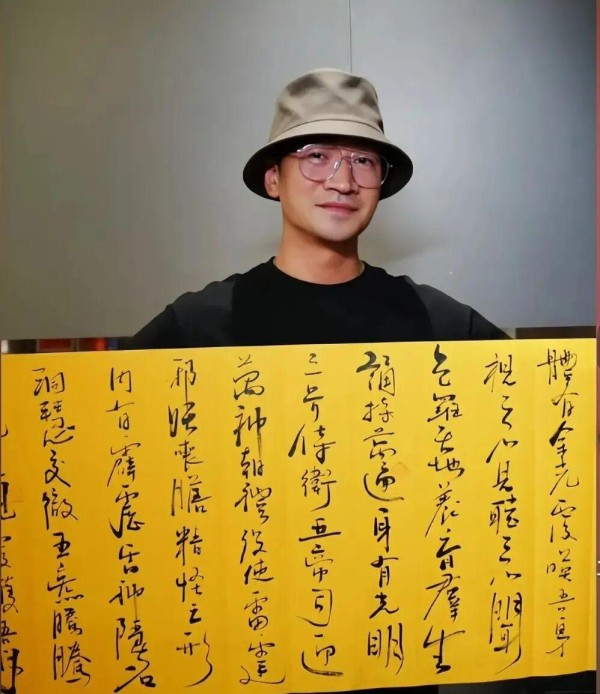 體有金光覆映吾身
視之不見聽之不聞
包羅天地養育羣生
誦持萬遍身有光明
三界侍衛五帝司迎
萬神朝禮役使雷霆
邪妖喪膽精怪亡形
内有霹靂雷神隱名
洞慧交徹五炁騰騰
覆護吾